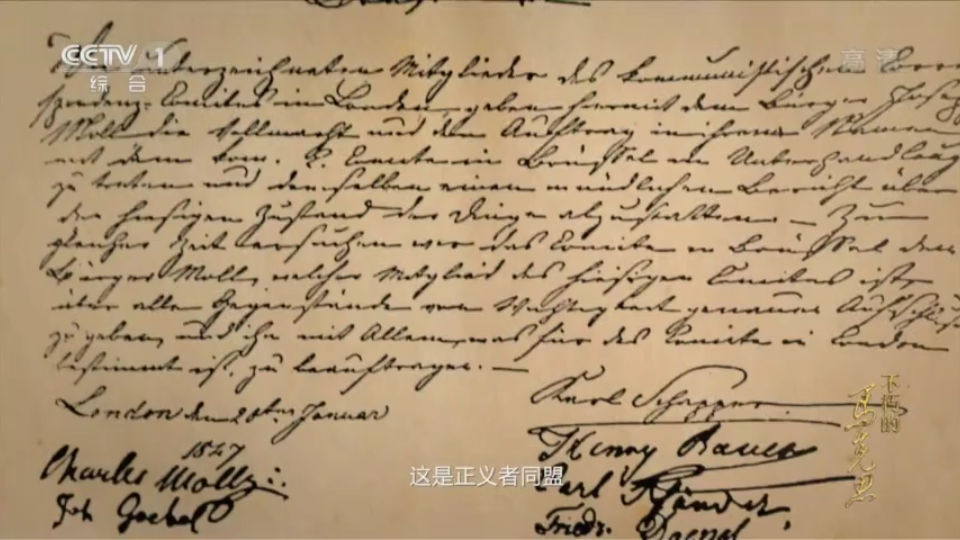 CCTV 1
综合
高清
Die Unterzeichneten Mitglieder des kommunistischen
Comites in London, geben hiermit dem Bürger
Moll die Vollmacht und den Auftrag in ihrem Namen
mit dem kom. C. Comite in Brüssel in Unterhandlung
zu treten und demselben einen mündlichen Bericht über
den hiesigen Zustand der Dinge abzustatten. — Zur
gleicher Zeit ersuchen wir das Comite in Brüssel dem
Bürger Moll, welcher Mitglied des hiesigen Comites ist,
über alle Gegenstände von Wichtigkeit genauen
zu geben, und ihn mit Allem, was für das Comite in London
bestimmt ist, zu beauftragen. —
London den 20ten Januar
1847
Karl Schapper
Henry Bauer
Charles Moll
Karl Pfänder
Joh Goebel
Friedr. Doepel
不朽的
马克思
这是正义者同盟